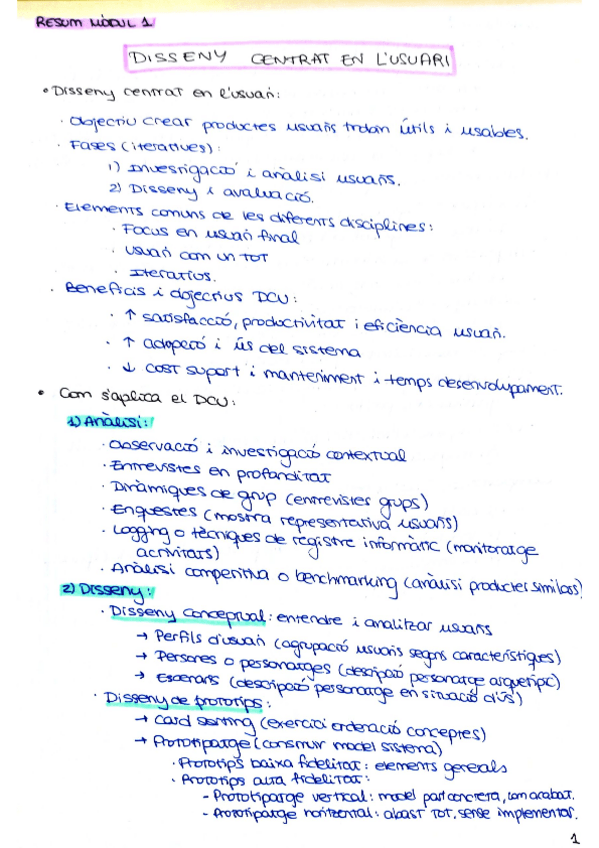 RESUM MÒDUL 1
DISSENY CENTRAT EN L'USUARI
• Disseny centrat en l'usuari:
· Objectiu crear productes usuaris trobin útils i usables.
· Fases (iteratives):
1) Investigació i anàlisi usuaris.
2) Disseny i avaluació.
· Elements comuns de les diferents disciplines:
· Focus en usuari final
· Usuari com un TOT
· Iteratius.
· Beneficis i objectius DCU:
· ↑ satisfacció, productivitat i eficiència usuari.
· ↑ adopció i ús del sistema
· ↓ cost suport i manteniment i temps desenvolupament.
• Com s'aplica el DCU:
1) Anàlisi:
· Observació i investigació contextual
· Entrevistes en profunditat
· Dinàmiques de grup (entrevistes grups)
· Enquestes (mostra representativa usuaris)
· Logging o tècniques de registre informàtic (monitoratge
activitats)
· Anàlisi competitiva o benchmarking (anàlisi productes similars)
2) Disseny:
· Disseny conceptual: entendre i analitzar usuaris
→ Perfils d'usuari (agrupació usuaris segons característiques)
→ Persones o personatges (descripció personatge arquetípic)
→ Escenaris (descripció personatge en situació d'ús)
· Disseny de prototips:
→ Card sorting (exercici ordenació conceptes)
→ Prototipatge (construir model sistema)
· Prototips baixa fidelitat: elements generals
· Prototips alta fidelitat:
- Prototipatge vertical: model part concreta, com acabat.
- Prototipatge horitzontal: abast TOT, sense implementar.
1